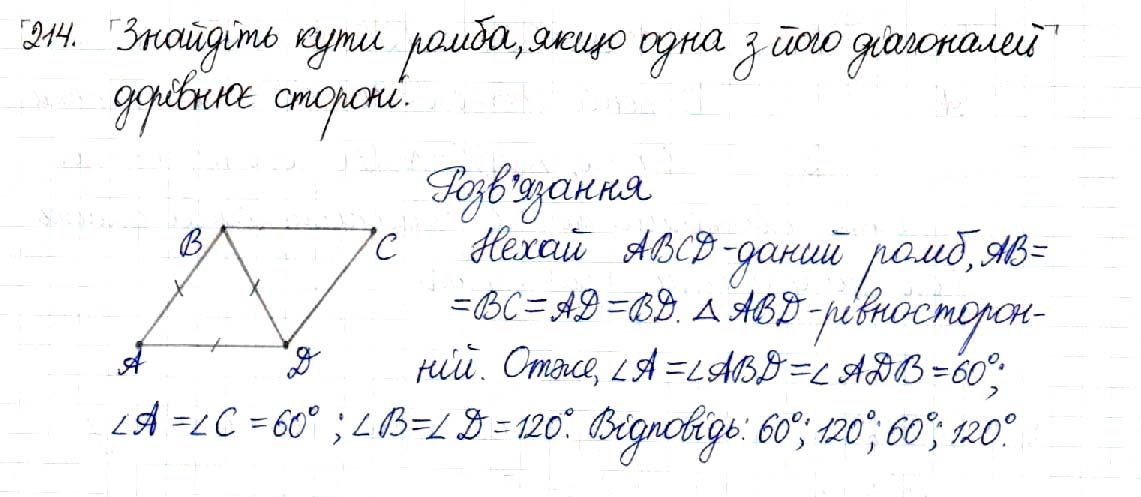 214. Знайдіть кути ромба, якщо одна з його діагоналей
дорівнює стороні.
Розв'язання
B C
A D
Нехай ABCD - даний ромб, AB =
= BC = AD = BD. △ ABD - рівносторон-
ній. Отже, ∠A = ∠ABD = ∠ADB = 60°;
∠A = ∠C = 60°; ∠B = ∠D = 120°. Відповідь: 60°; 120°; 60°; 120°.